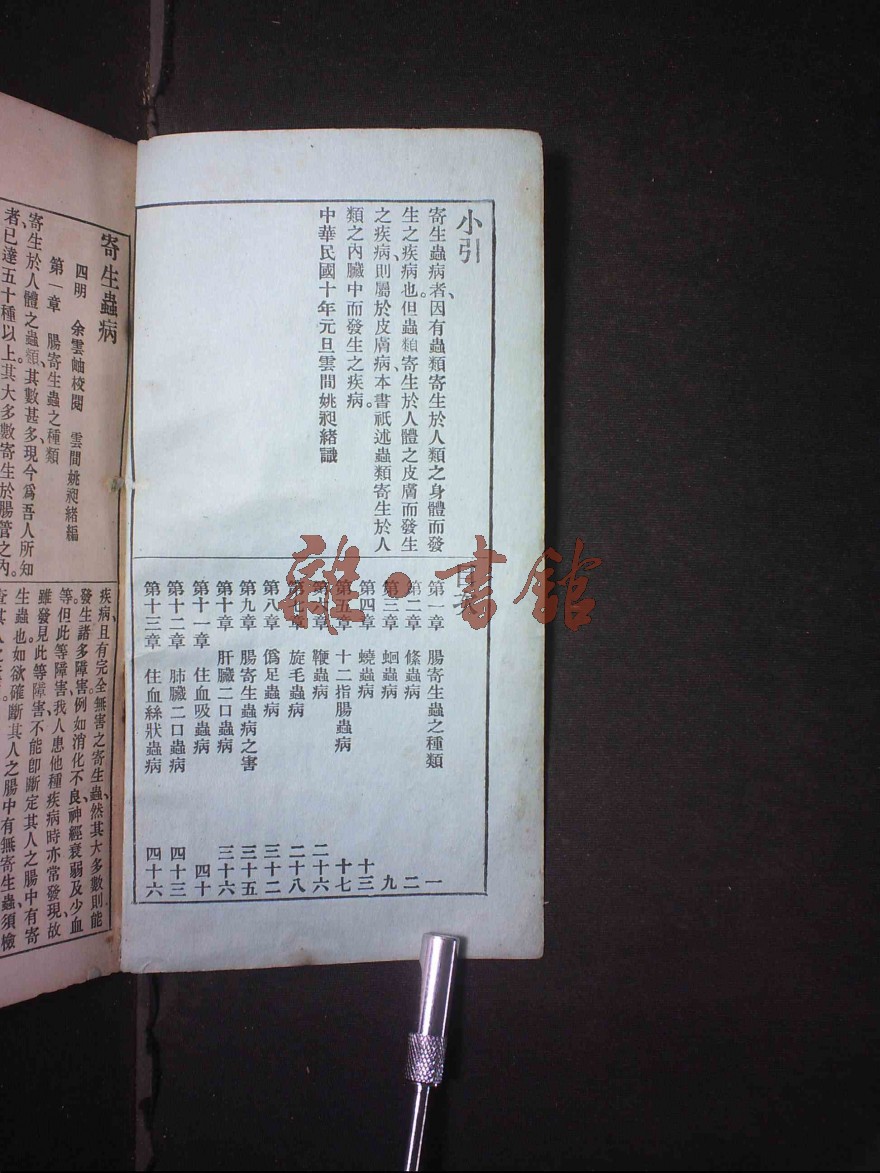 小引
寄生蟲病者、因有蟲類寄生於人類之身體而發
生之疾病也。但蟲類寄生於人體之皮膚而發生
之疾病、則屬於皮膚病、本書祇述蟲類寄生於人
類之內臟中而發生之疾病。
中華民國十年元旦雲間姚昶緒識
目次
第一章 腸寄生蟲之種類 一
第二章 條蟲病 二
第三章 蛔蟲病 九
第四章 蟯蟲病 十三
第五章 十二指腸蟲病 十七
第六章 鞭蟲病 二十六
第七章 旋毛蟲病 二十八
第八章 僞足蟲病 三十二
第九章 腸寄生蟲病之害 三十五
第十章 肝臟二口蟲病 三十六
第十一章 住血吸蟲病 四十
第十二章 肺臟二口蟲病 四十三
第十三章 住血絲狀蟲病 四十六
寄生蟲病
四明 余雲岫校閱 雲間姚昶緒編
第一章 腸寄生蟲之種類
寄生於人體之蟲類、其數甚多、現今爲吾人所知
者、已達五十種以上、其大多數寄生於腸管之內。
疾病、且有完全無害之寄生蟲、然其大多數則能
發生諸多障害、例如消化不良、神經衰弱及少血
等、但此等障害、我人患他種疾病時亦常發現、故
雖發見此等障害、不能卽斷定其人之腸中有寄
生蟲也。如欲確斷其人之腸中有無寄生蟲、須檢
雜·書館